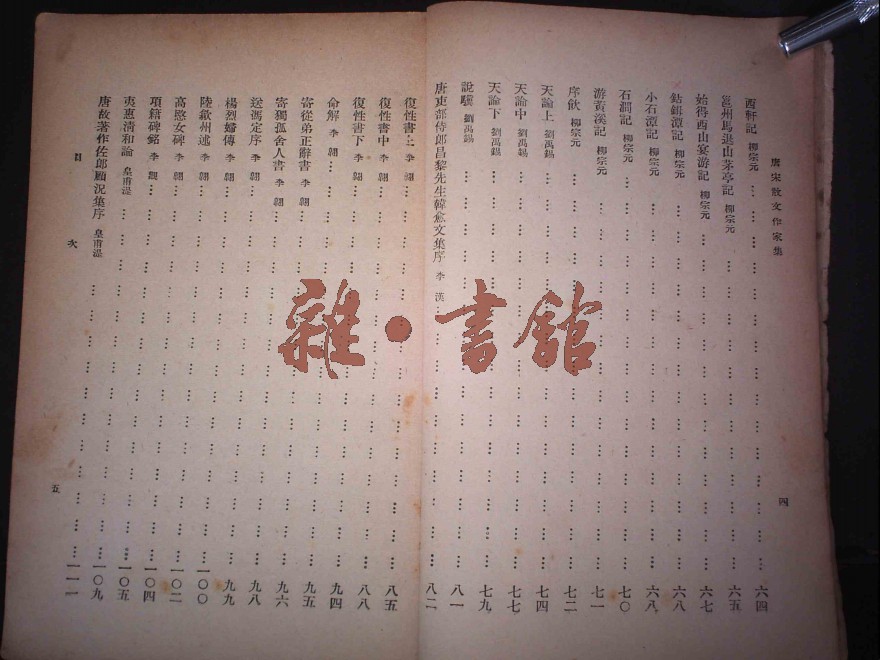 唐宋散文作家集
西軒記 柳宗元 … 六四
邕州馬退山茅亭記 柳宗元 … 六五
始得西山宴游記 柳宗元 … 六七
鈷鉧潭記 柳宗元 … 六八
小石潭記 柳宗元 … 六八
石澗記 柳宗元 … 七〇
游黃溪記 柳宗元 … 七一
序飲 柳宗元 … 七二
天論上 劉禹錫 … 七四
天論中 劉禹錫 … 七七
天論下 劉禹錫 … 七九
說驥 劉禹錫 … 八一
唐吏部侍郎昌黎先生韓愈文集序 李漢 … 八二
四
復性書上 李翱 … 八五
復性書中 李翱 … 八八
復性書下 李翱 … 九四
命解 李翱 … 九五
寄從弟正辭書 李翱 … 九六
寄獨孤舍人書 李翱 … 九八
送馮定序 李翱 … 九九
楊烈婦傳 李翱 … 一〇〇
陸歙州述 李翱 … 一〇二
高愍女碑 李翱 … 一〇四
項籍碑銘 李觀 … 一〇五
夷惠清和論 皇甫湜 … 一〇九
唐故著作佐郎顧況集序 皇甫湜 … 一一一
目次
五
雜·書館